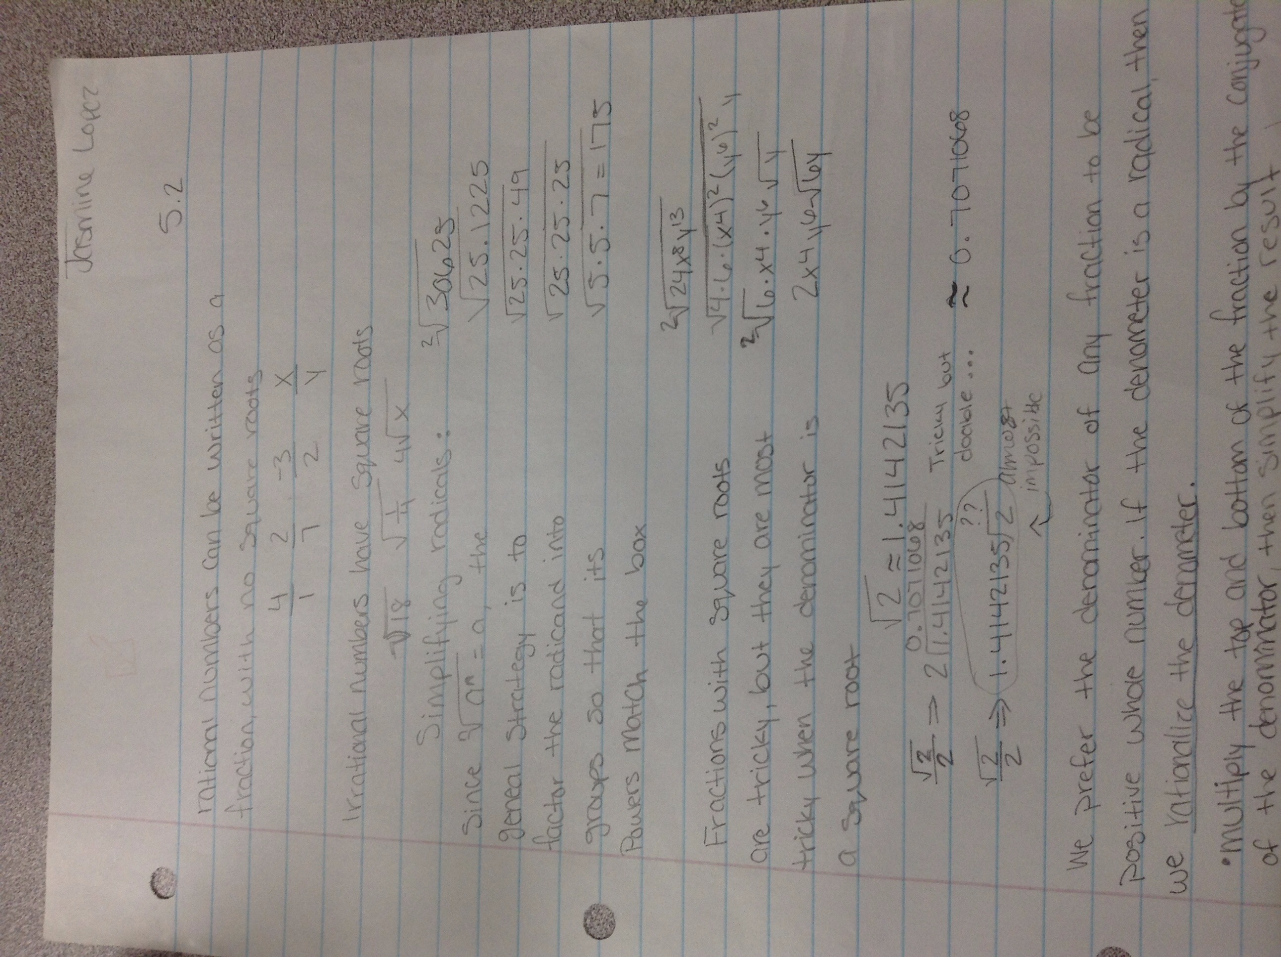 Jasmine Lopez
5.2
rational numbers can be written as a
fraction, with no square roots
4/1 2/7 -3/2 x/y
Irrational numbers have square roots
-√18 √1/4 4√x
Simplifying radicals:
Since ⁿ√aⁿ = a, the
general strategy is to
factor the radicand into
groups so that its
Powers match the box
²√30625
√25.1225
√25.25.49
√25.25.25
√5.5.7=175
²√24x⁸y¹³
√4.6.(x4)²(y⁶)² y
²√6.x4.y⁶√y
2x4y⁶√6y
Fractions with square roots
are tricky, but they are most
tricky when the denominator is
a square root
√2 ≈ 1.4142135
√2/2 ⇒ 2√1.4142135 0.7071068 Tricky but doable... ≈ 0.7071068
√2/2 ⇒ 1.4142135√2 ?? almost impossible
We prefer the denominator of any fraction to be
positive whole number. If the denometer is a radical, then
we rationalize the denometer.
•Multiply the top and bottom of the fraction by the conjugate
of the denominator, then simplify the result